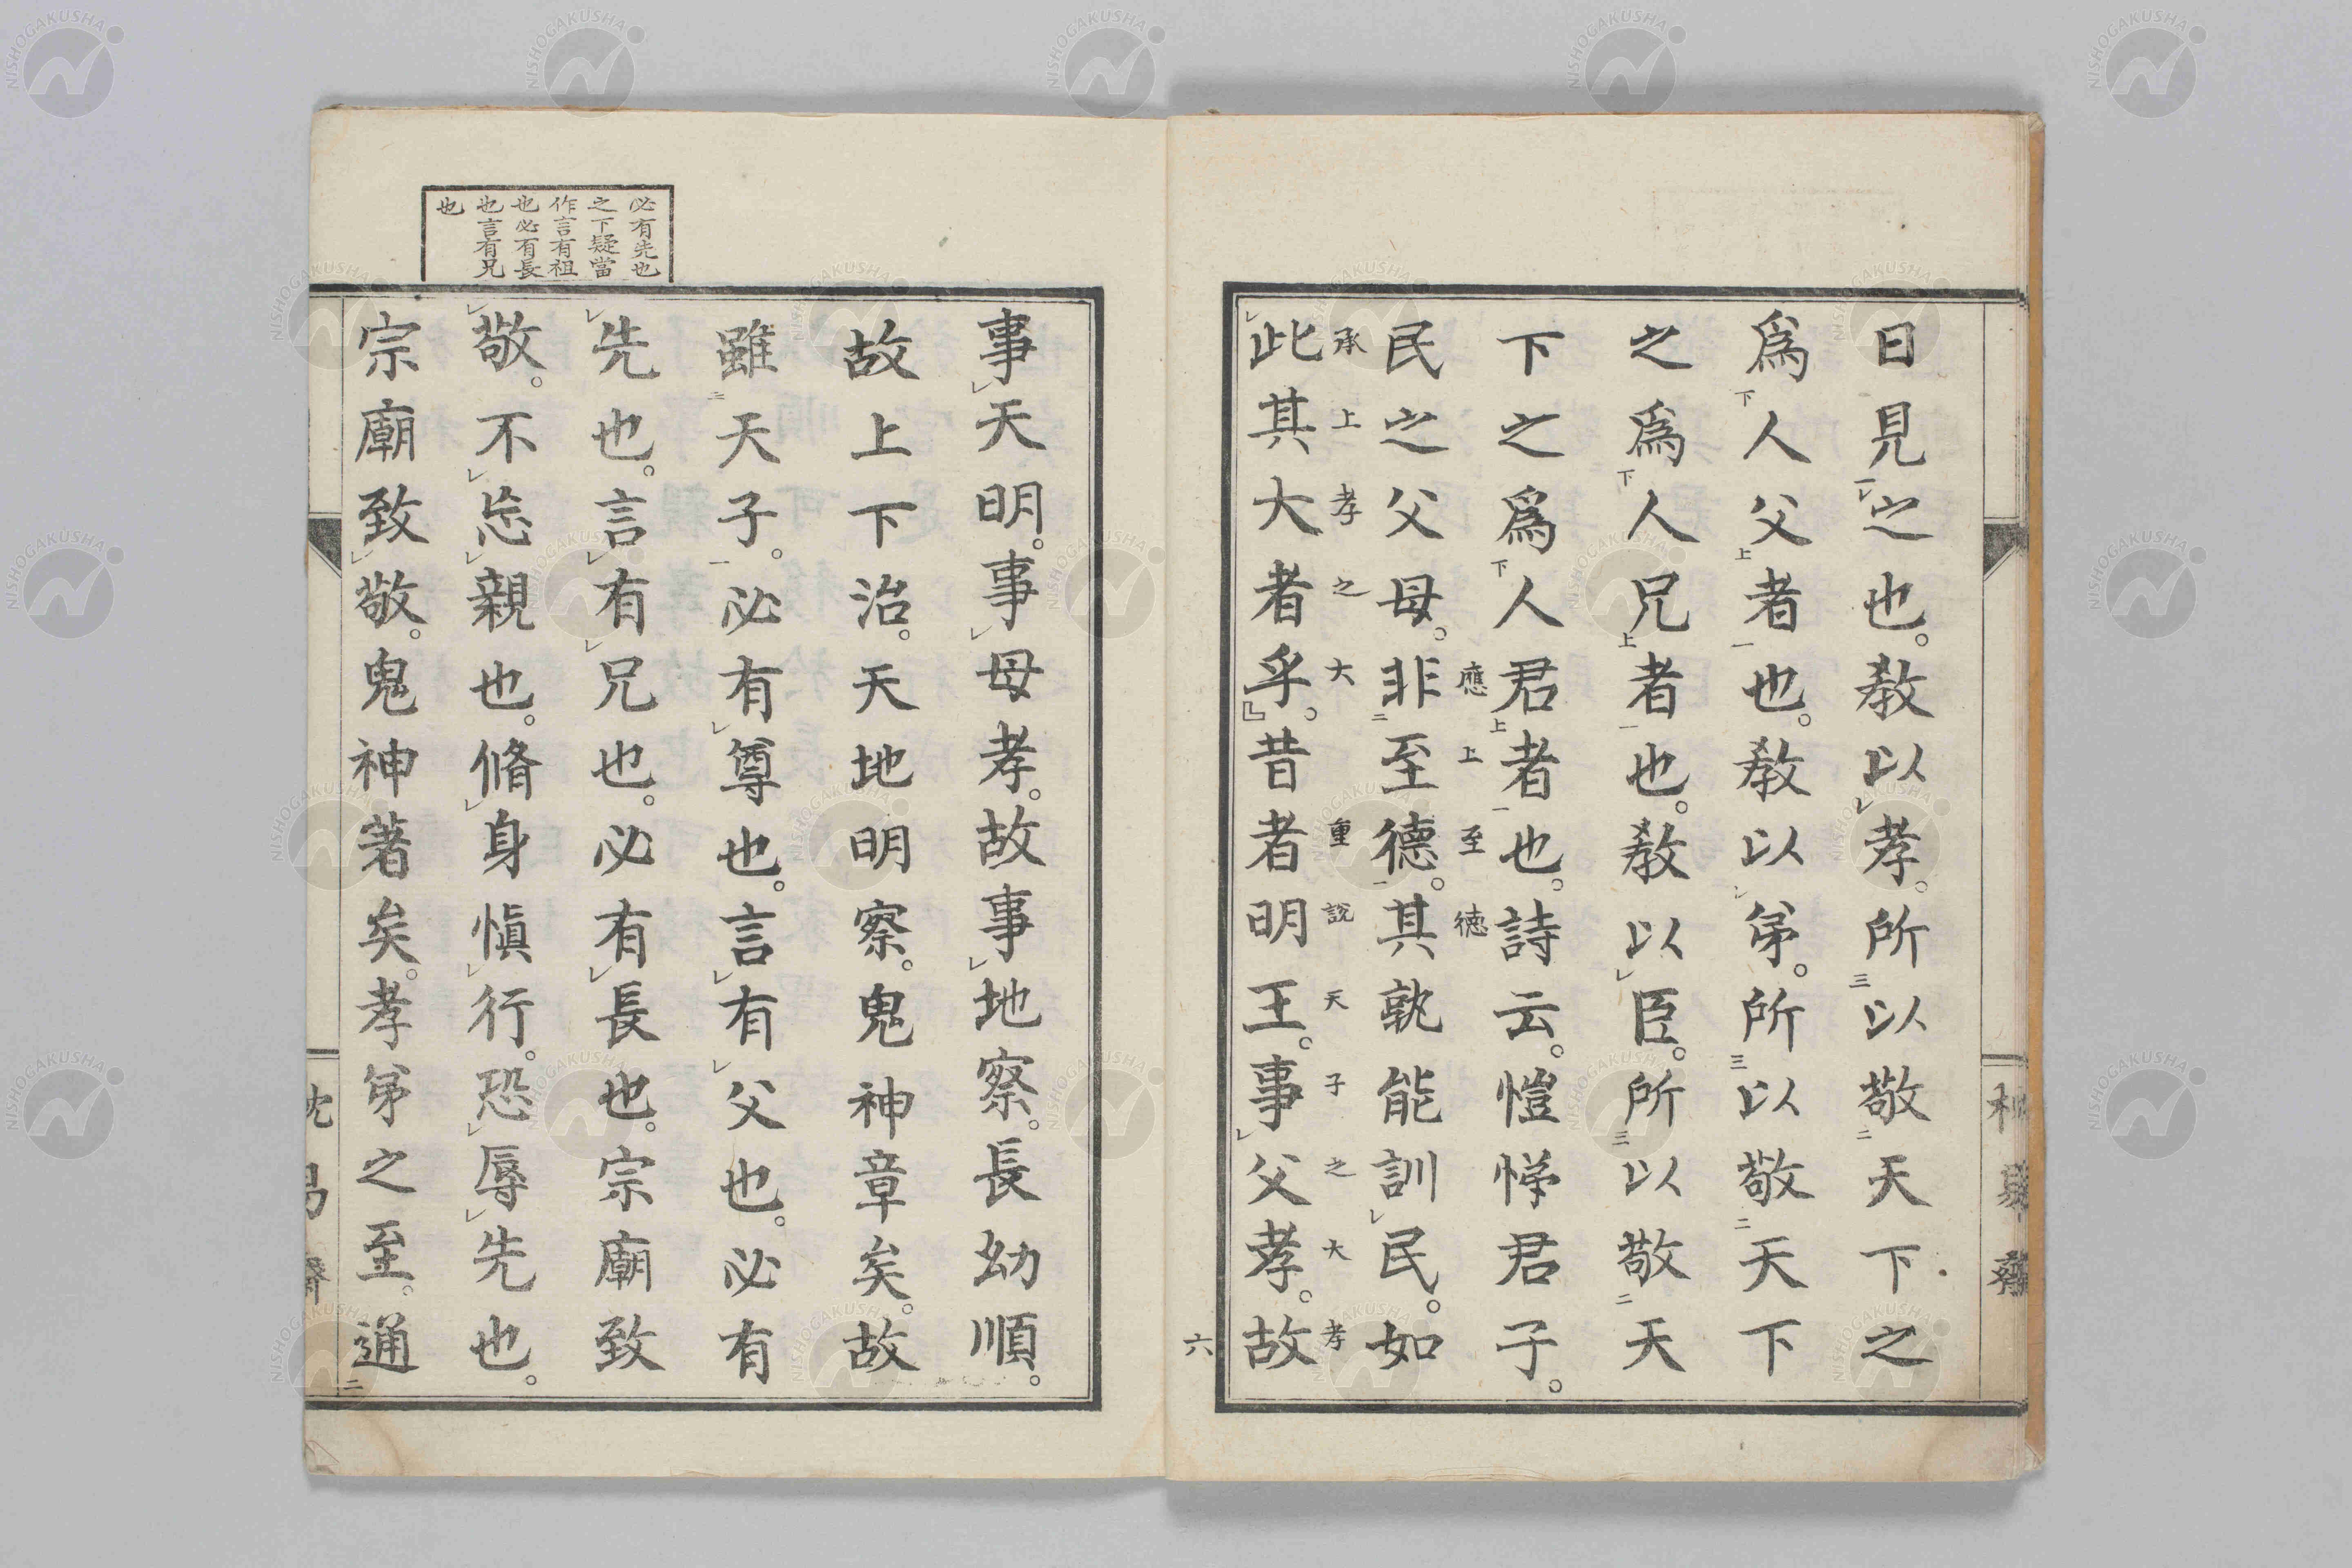 日見之也。敎以孝。所以敬天下之
爲人父者也。敎以弟。所以敬天下
之爲人兄者也。敎以臣。所以敬天
下之爲人君者也。詩云。愷悌君子。
應上至德
民之父母。非至德。其孰能訓民。如
承上孝之大重說天子之大孝
此其大者乎。』昔者明王。事父孝。故
六
事天明。事母孝。故事地察。長幼順。
故上下治。天地明察。鬼神章矣。故
雖天子。必有尊也。言有父也。必有
先也。言有兄也。必有長也。宗廟致
敬。不忘親也。脩身愼行。恐辱先也。
宗廟致敬。鬼神著矣。孝弟之至。通
必有先也
之下疑當
作言有祖
也必有長
也言有兄
也